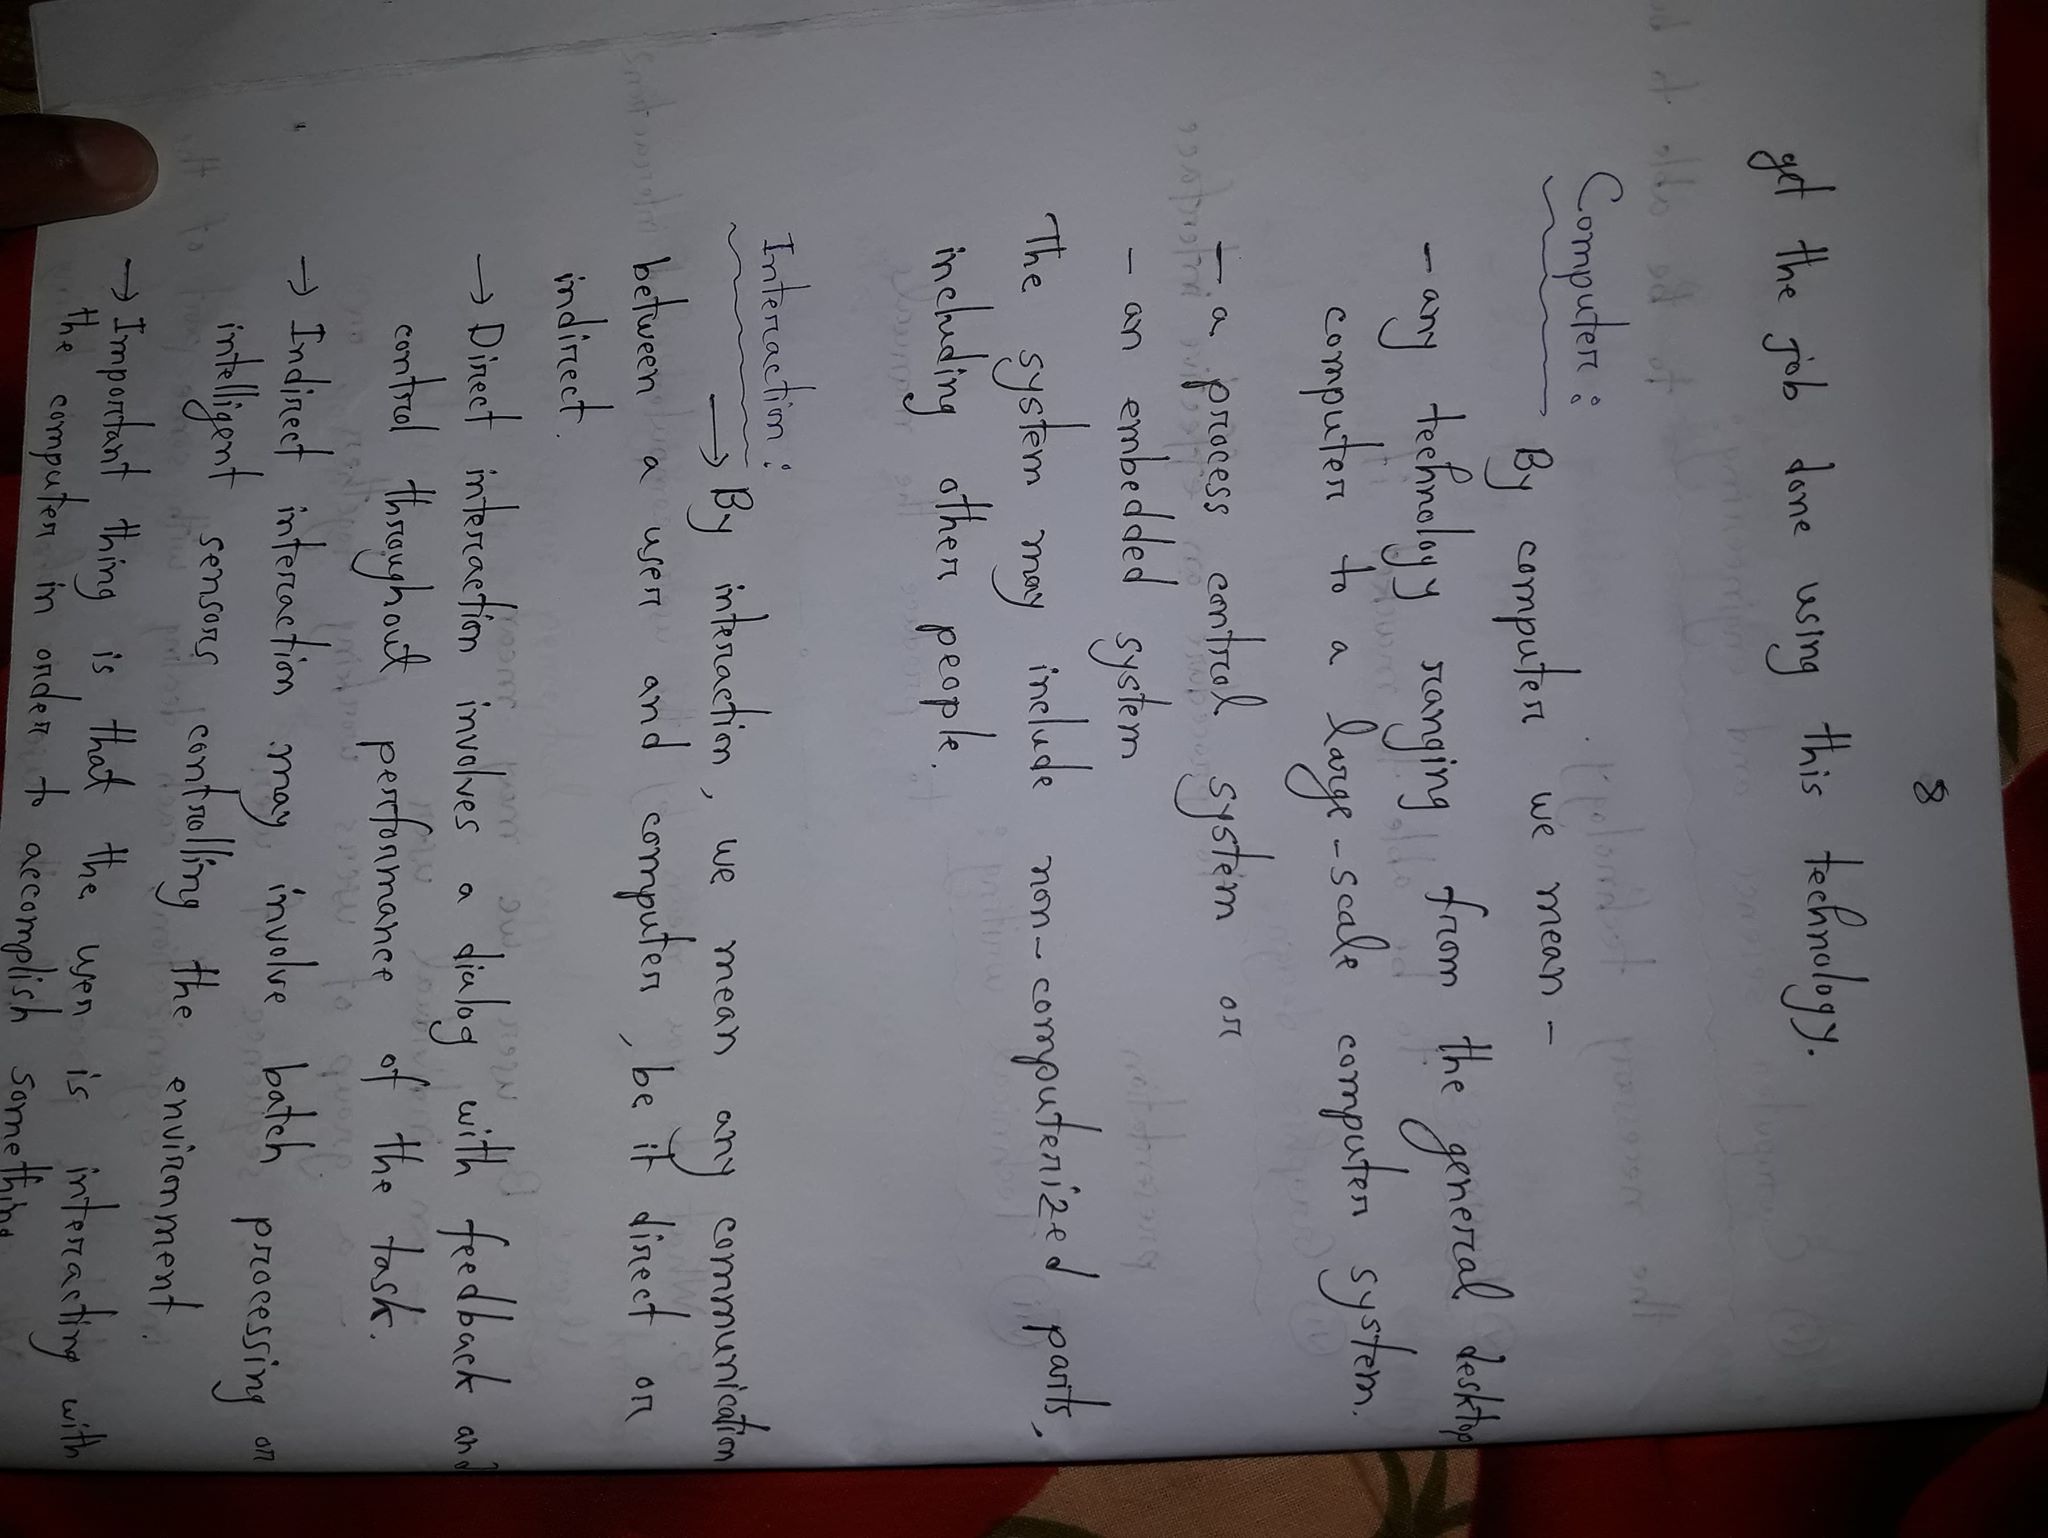 8
get the job done using this technology.
Computer:
By computer we mean -
- any technology ranging from the general desktop
computer to a large-scale computer system.
- a process control system or
- an embedded system
The system may include non-computerized parts,
including other people.
Interaction:
→ By interaction, we mean any communication
between a user and computer, be it direct or
indirect.
→ Direct interaction involves a dialog with feedback and
control throughout performance of the task.
→ Indirect interaction may involve batch processing or
intelligent sensors controlling the environment.
→ Important thing is that the user is interacting with
the computer in order to accomplish something